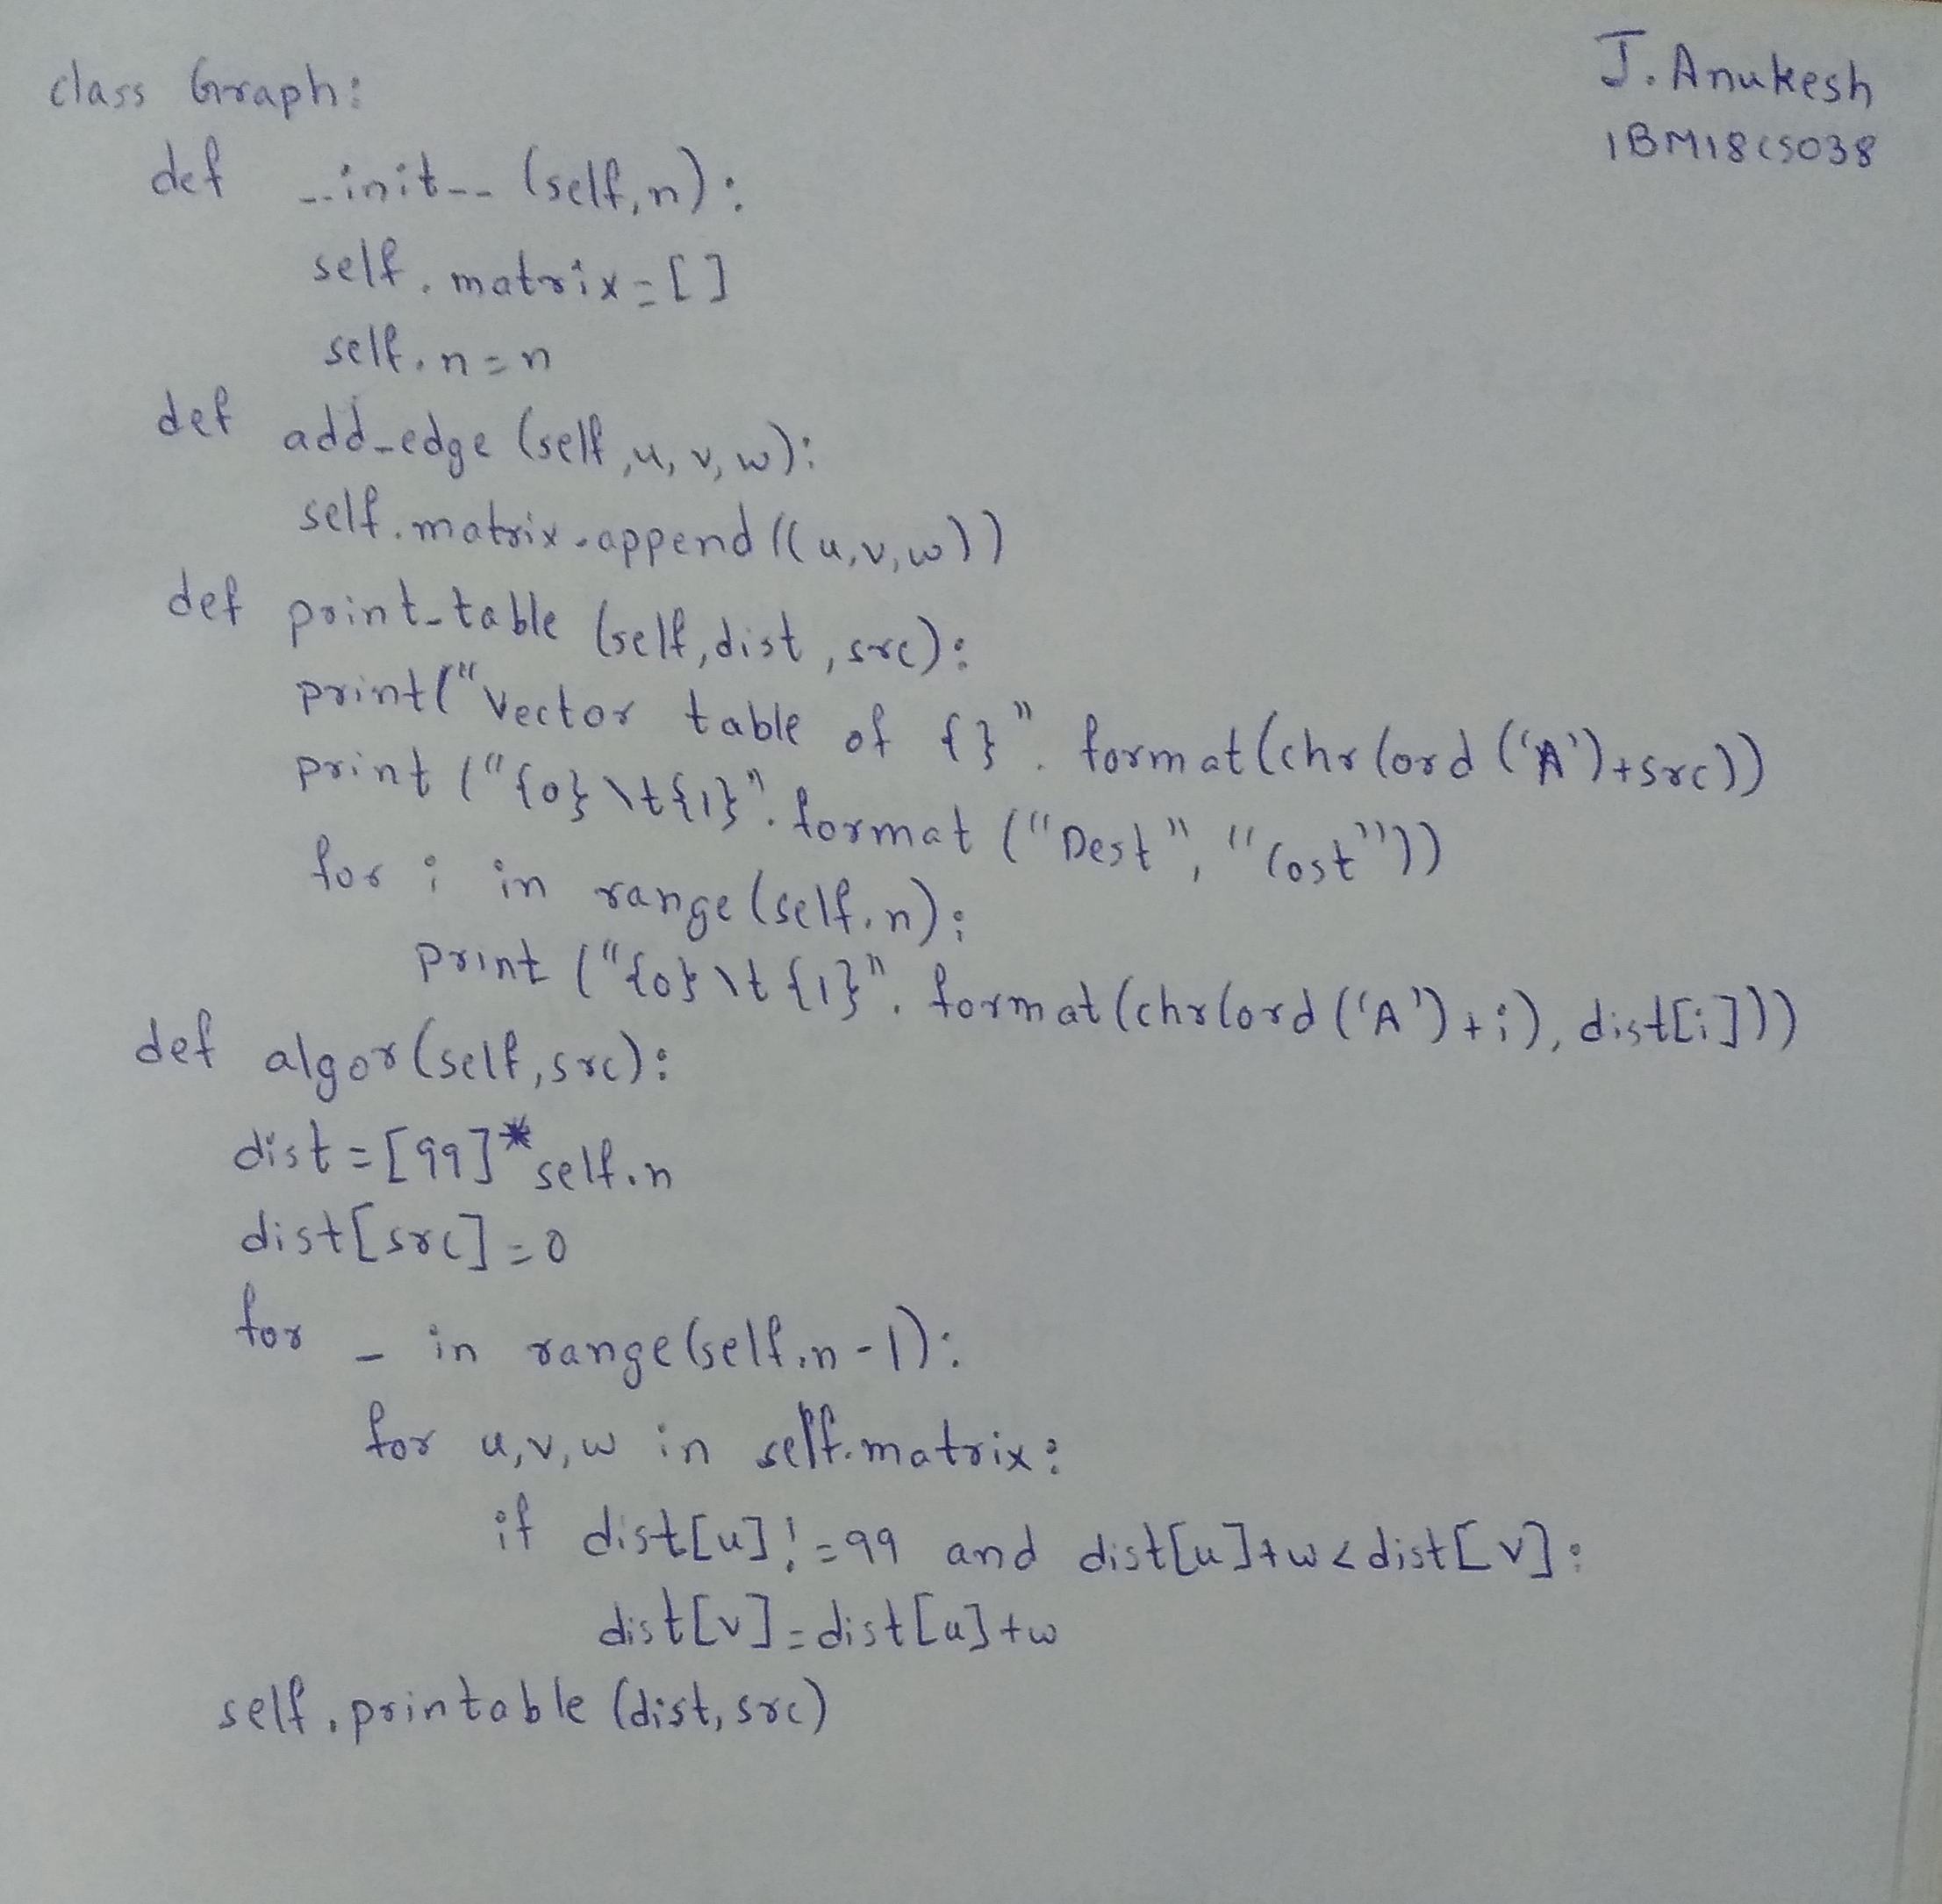 J. Anukesh
1BM18CS038
class Graph:
    def __init__ (self,n):
        self.matrix=[]
        self.n=n
    def add_edge (self,u,v,w):
        self.matrix.append((u,v,w))
    def print_table (self,dist,src):
        print("Vector table of {}".format(chr(ord('A')+src))
        print ("{0}\t{1}".format ("Dest","Cost"))
        for i in range(self.n):
            print ("{0}\t{1}".format(chr(ord('A')+i), dist[i]))
    def algor(self,src):
        dist=[99]*self.n
        dist[src]=0
        for _ in range(self.n-1):
            for u,v,w in self.matrix:
                if dist[u]!=99 and dist[u]+w<dist[v]:
                    dist[v]=dist[u]+w
        self.printable (dist,src)